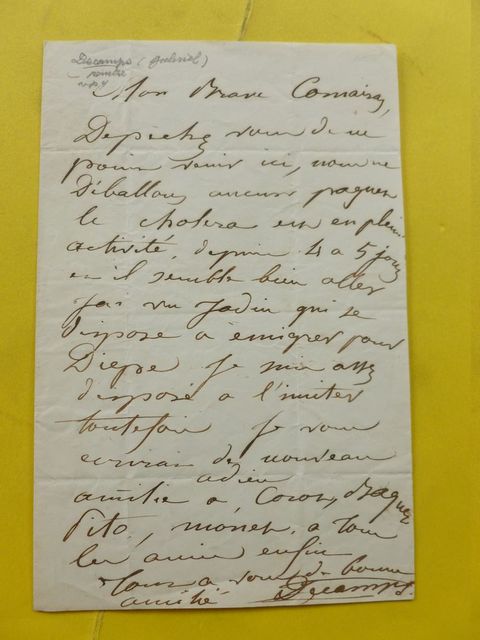 Descamps (Gabriel)
peintre
Mon Brave Comairas,
Depechez vous de ne
point venir ici, nous ne
Déballons aucuns paquets
le cholera est en pleine
activité, depuis 4 a 5 jours
et il semble bien aller
j'ai vu Jadin qui se
dispose a émigrer pour
Diepe je suis assez
disposé a l'imiter
toutefois je vous
ecrirai de nouveau
adieu
amitié a Corot,
Pito, a tous
les amis enfin
Tout a vous de bonne
amitié Decamps.